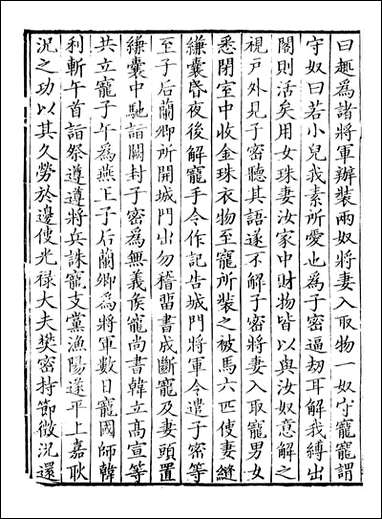 曰趣爲諸將軍辦裝兩奴將妻入取物一奴守寵寵謂
守奴曰若小兒我素所愛也爲子密逼劫耳解我縛出
閤則活矣用女珠妻汝家中財物皆以與汝奴意解之
視戸外見子密聽其語遂不解子密將妻入取寵男女
悉閉室中收金珠衣物至寵所裝之被馬六匹使妻縫
縑囊昏夜後解寵手令作記告城門將軍令遣子密等
至子后蘭卿所開城門出勿稽留書成斷寵及妻頭置
縑囊中馳詣闕封子密爲無義侯寵尚書韓立高宣等
共立寵子午爲燕王子后蘭卿爲將軍數日寵國師韓
利斬午首詣祭遵遵將兵誅寵支黨漁陽遂平上嘉耿
況之功以其久勞於邊使光禄大夫樊密持節徴況還